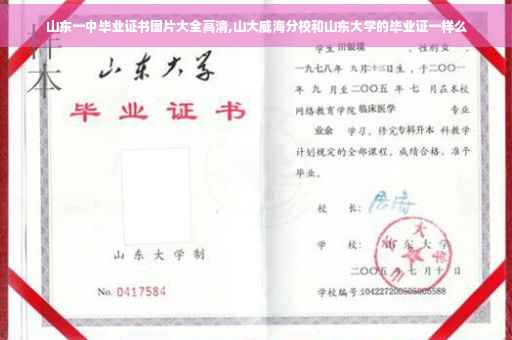 山东一中毕业证书图片大全高清,山大威海分校和山东大学的毕业证一样么
样本
山东大学
毕业证书
山东大学制
No. 0417584
学生
性别女，
一九七八年 九月十三日生，于二〇〇一
年 九 月至二〇〇五 年 七 月在本校
网络教育学院临床医学 专业
业余 学习，修完专科升本 科教学
计划规定的全部课程，成绩合格，准予
毕业。
校 长：
学 校： 山东大学
二〇〇五年七月十日
学校编号：